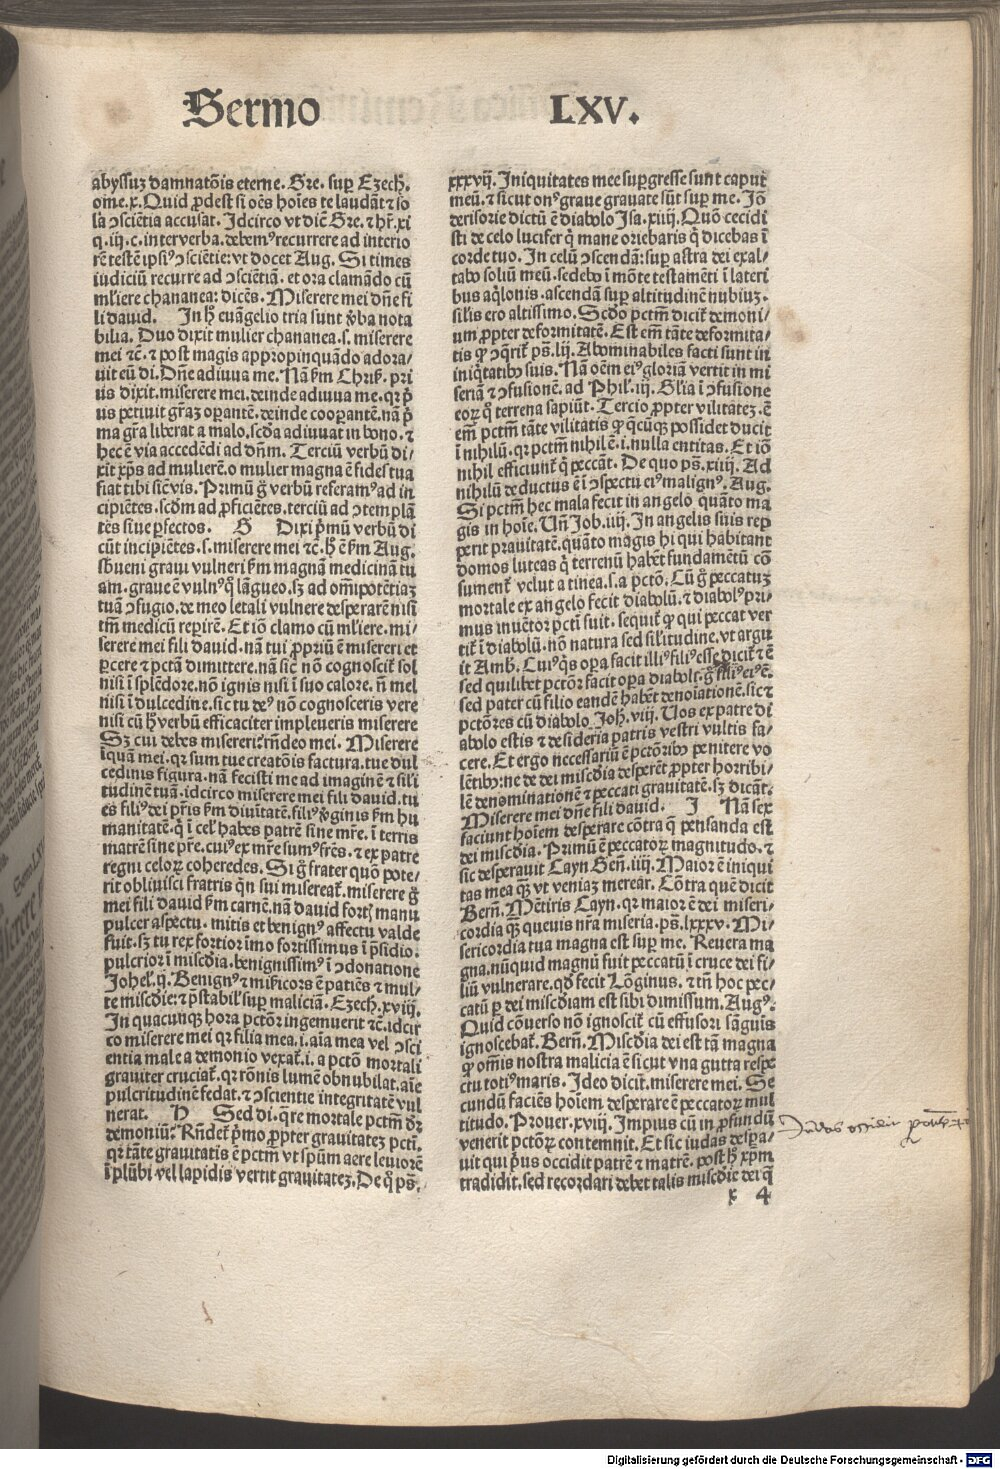 Sermo LXV.
abyssuz damnatōis eterne. Gre. sup̄ Ezech̄.
ome.x. Quid ꝓdest si oēs hoīes te laudāt ⁊ so
la ↄsciētia accusat. Idcirco vt dicit̄ Gre. ⁊ hr̄.xi
q.iij.c. inter verba. debemꝰ recurrere ad interio
rē testē ipsiꝰ ↄsciētie: vt docet Aug. Si times
iudiciū recurre ad ↄsciētiā. et ora clamādo cū
mĺiere chananea: dicēs. Miserere mei dn̄e fi
li dauid. In h̄ euāgelio tria sunt v̄ba nota
bilia. Duo dixit mulier chananea.s. miserere
mei ⁊c̄. ⁊ post magis appropinquādo adora/
uit eū di. Dn̄e adiuua me. Nā ẜm Chriẜ. pri
us dixit. miserere mei. deinde adiuua me. qꝛ p̄
us petiuit gr̄az oꝑantē. deinde cooꝑantē. nā p̄
ma gr̄a liberat a malo. scd̄a adiuuat in bono. ⁊
hec ē via accedēdi ad dn̄m. Terciū verbū di/
xit xp̄s ad mulierē. o mulier magna ē fides tua
fiat tibi sic̄ vis. Primū ḡ verbū referamꝰ ad in
cipiētes. scd̄m ad ꝓficiētes. terciū ad ↄtemplā
tes siue ꝑfectos. G Dixi p̄mū verbū di
cūt incipiētes.s. miserere mei ⁊c̄. h̄ ē ẜm Aug.
sb̄ueni graui vulneri ẜm magnā medicinā tu
am. graue ē vulnꝰ q̊ lāgueo. sꝫ ad om̄ipotētiaz
tuā ↄfugio. de meo letali vulnere desperarē nisi
tm̄ medicū reꝑirē. Et iō clamo cū mĺiere. mi/
serere mei fili dauid. nā tui ꝓpriū ē misereri et
ꝑcere ⁊ pctā dimittere. nā sic̄ nō cognoscit̄ sol
nisi ī splēdore. nō ignis nisi ī suo calore. n̄ mel
nisi ī dulcedine. sic tu deꝰ nō cognosceris vere
nisi cū h̄ verbū efficaciter impleueris miserere
Sꝫ cui debes misereri: rn̄deo mei. Miserere
īquā mei. qꝛ sum tue creatōis factura. tue dul
cedinis figura. nā fecisti me ad imaginē ⁊ sil̄i
tudinē tuā. idcirco miserere mei fili dauid. tu
es filiꝰ dei pr̄is ẜm diuītatē. filiꝰ v̄ginis ẜm hu
manitatē. q̇ ī cel̄ habes patrē sine mr̄e. ī terris
matrē sine pr̄e. cuiꝰ ex mr̄e sumꝰ fr̄es. ⁊ ex patre
regni celoꝝ coheredes. Si ḡ frater quō pote/
rit obliuisci fratris qn̄ sui misereat̄. miserere ḡ
mei fili dauid ẜm carnē. nā dauid fort̄ manu
pulcer aspectu. mitis et benignꝰ affectu valde
fuit. sꝫ tu rex fortior īmo fortissimus ī p̄sidio.
pulcrior ī miscd̄ia. benignissimꝰ ī ↄdonatione
Johel̄.ij. Benignꝰ ⁊ mīẜicors ē patiēs ⁊ mul/
te miscd̄ie: ⁊ p̄stabil̄ sup̄ maliciā. Ezech̄.xviij.
In quacunqꝫ hora pctōr ingemuerit ⁊c̄. idcir
co miserere mei qꝛ filia mea.i. aīa mea vel ↄsci
entia male a demonio vexat̄.i. a pctō mortali
grauiter cruciat̄. qꝛ rōnis lumē obnubilat. aīe
pulcritudinē fedat. ⁊ ↄscientie integritatē vul
nerat. H Sed di. q̄re mortale pctm̄ dr̄
demoniū? Rn̄det̄ p̄mo ꝓpter grauitatez pcti.
qꝛ tāte grauitatis ē pctm̄ vt spūm aere leuiorē
ī plūbi vel lapidis vertit grauitatez. De q̊ ps̄.
xxxvij. Iniquitates mee suꝑgresse sunt caput
meū. ⁊ sicut onꝰ graue grauate sūt sup̄ me. Jō
derisorie dictū ē diabolo Isa.xiiij. Quō cecidi
sti de celo lucifer q̇ mane oriebaris q̇ dicebas ī
corde tuo. In celū ↄscendā: sup̄ astra dei exal/
tabo soliū meū. sedebo ī mōte testamēti ī lateri
bus aq̇lonis. ascendā sup̄ altitudinē nubiuz.
sil̄is ero altissimo. Scd̄o pctm̄ dicit̄ demoni/
um ꝓpter deformitatē. Est em̄ tāte deformita/
tis ꝙ ↄq̄rit̄ ps̄.lij. Abominabiles facti sunt in
iniq̇tatibꝰ suis. Nā oēm eiꝰ gloriam vertit in mi
seriā ⁊ ↄfusionē. ad Phil̄.iij. Gl̄ia ī ↄfusione
eoꝝ q̇ terrena sapiūt. Tercio ꝓpter vilitatez. ē
em̄ pctm̄ tāte vilitatis ꝙ q̇cūqꝫ possidet ducit
ī nihilū. qꝛ pctm̄ nihil ē.i. nulla entitas. Et iō
nihil efficiunt̄ q̇ peccāt. De quo ps̄.xiiij. Ad
nihilū deductus ē ī ↄspectu eiꝰ malignꝰ. Aug.
Si pctm̄ hec mala fecit in angelo quāto ma
gis in hoīe. Vn̄ Job.iiij. In angelis suis rep̄
perit prauitatē. quāto magis hi qui habitant
domos luteas q̇ terrenū habēt fundamētū cō
sument̄ velut a tinea.s.a pctō. Cū ḡ peccatuz
mortale ex angelo fecit diabolū. ⁊ diabolꝰ pri/
mus inuētor pcti fuit. sequit̄ ꝙ qui peccat ver
tit̄ ī diabolū. nō natura sed sil̄itudine. vt argu
it Amb̄. Cuiꝰ q̇s oꝑa facit illiꝰ filiꝰ esse dicit̄ ⁊ ē
sed quilibet pctōr facit oꝑa diaboli. ḡ filiꝰ eiꝰ ē.
sed pater cū filio eandē habēt denoīationē. sic ⁊
pctōres cū diabolo Joh̄.viij. Vos ex patre di
abolo estis ⁊ desideria patris vestri vultis fa/
cere. Et ergo necessariū ē pctōribꝰ penitere vo
lētibꝰ: ne de dei miscd̄ia desperēt ꝓpter horribi/
lē denominationē ⁊ peccati grauitatē. sꝫ dicāt.
Miserere mei dn̄e fili dauid. I Nā sex
faciunt hoīem desperare cōtra q̄ pensanda est
dei miscd̄ia. Primū ē peccatoꝝ magnitudo. ⁊
sic desperauit Cayn Gen̄.iiij. Maior ē iniqui
tas mea qꝫ vt veniaz merear. Cōtra quē dicit
Bern̄. Mētiris Cayn. qꝛ maior ē dei miseri/
cordia qꝫ queuis nr̄a miseria. ps̄.lxxxv. Mi/
sericordia tua magna est sup̄ me. Reuera ma
gna. nūquid magnū fuit peccatū ī cruce dei fi/
liū vulnerare. qd̄ fecit Lōginus. ⁊ tn̄ hoc pec/
catū ꝑ dei miscd̄iam est sibi dimissum. Augꝰ.
Quid cōuerso nō ignoscit̄ cū effusori sāguīs
ignoscebat̄. Bern̄. Miscd̄ia dei est tā magna
ꝙ om̄is nostra malicia ē sicut vna gutta respe
ctu totiꝰ maris. Ideo dicit̄. miserere mei. Se
cundū faciēs hoīem desperare ē peccatoꝝ mul
titudo. Prouer.xviij. Impius cū in ꝓfundū
venerit pctōꝝ contemnit. Et sic iudas despa/
uit qui p̄us occidit patrē ⁊ matrē. post h̄ xp̄m
tradidit. sed recordari debet talis miscd̄ie dei q̄
x 4
Judas occidit
Digitalisierung gefördert durch die Deutsche Forschungsgemeinschaft - DFG